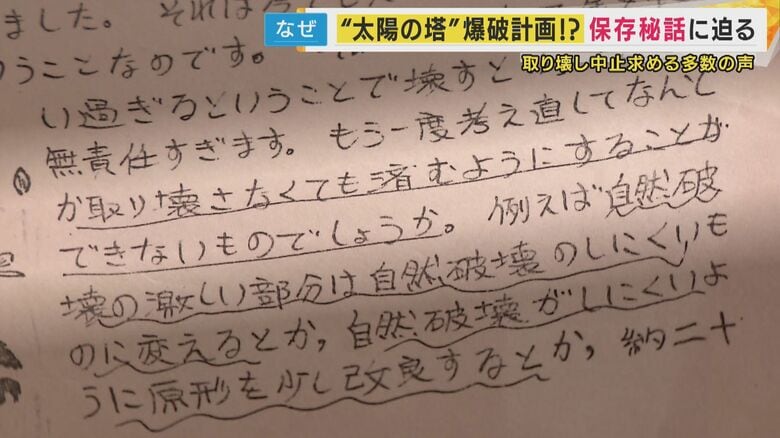 なぜ
“太陽の塔”爆破計画!? 保存秘話に迫る
取り壊し中止求める多数の声
ました。それは
うことなのです。
い過ぎるということで壊すと
無責任すぎます。もう一度考え直してなんと
か取り壊さなくても済むようにすることが
できないものでしょうか。例えば自然破
壊の激しい部分は自然破壊のしにくいも
のに変えるとか,自然破壊がしにくいよ
うに原形を少し改良するとか,約二十